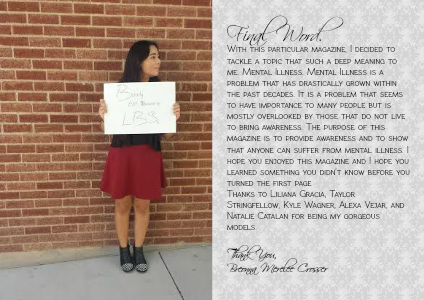 Final Word.
With this particular magazine, I decided to
tackle a topic that such a deep meaning to
me. Mental Illness. Mental Illness is a
problem that has drastically grown within
the past decades. It is a problem that seems
to have importance to many people but is
mostly overlooked by those that do not live
to bring awareness. The purpose of this
magazine is to provide awareness and to show
that anyone can suffer from mental illness. I
hope you enjoyed this magazine and I hope you
learned something you didn't know before you
turned the first page
Thanks to Liliana Gracia, Taylor
Stringfellow, Kyle Wagner, Alexa Vejar, and
Natalie Catalan for being my gorgeous
models
Thank You,
Breonna Merelee Crosser
LBS